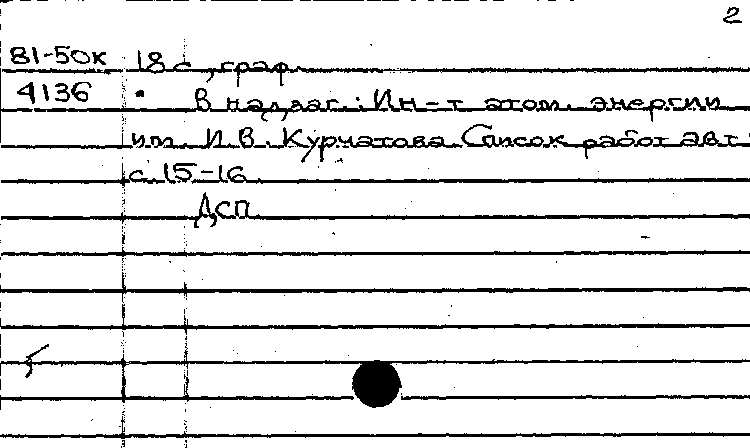 2
81-50к 18 с, граф.
4136 В надзаг.: Ин-т атом. энергии
им. И.В. Курчатова. Список работ авт.:
с. 15-16.
ДСП